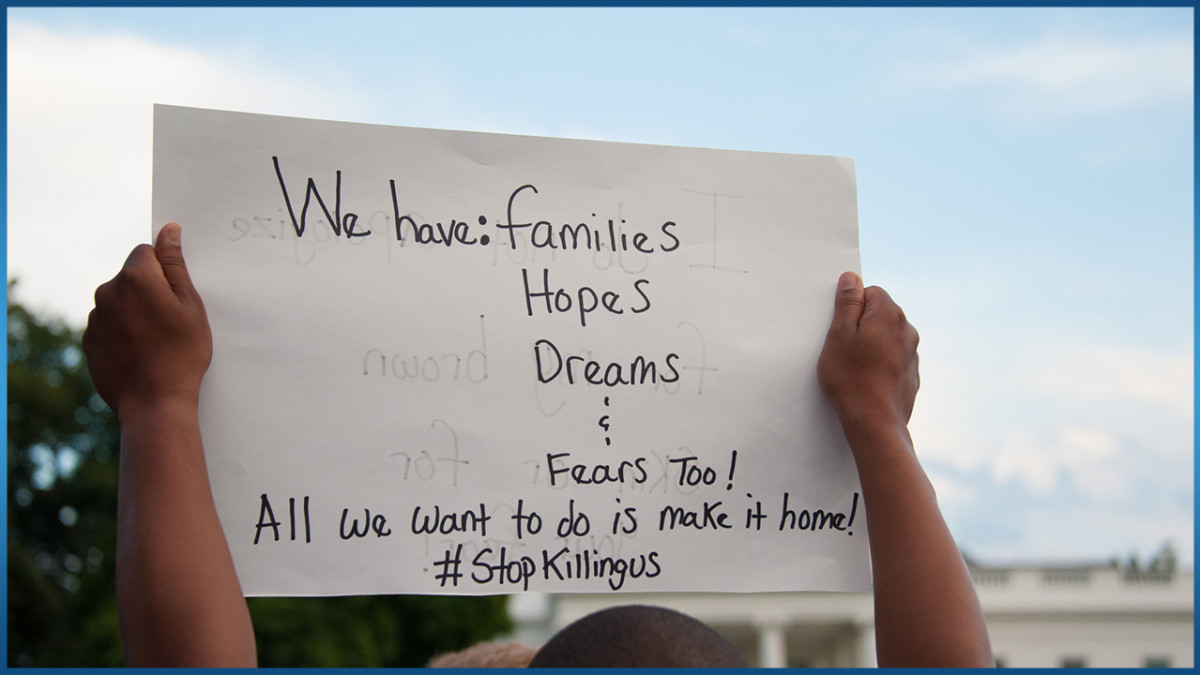 We have: families
Hopes
Dreams
&
Fears Too!
All we want to do is make it home!
#StopKillingus